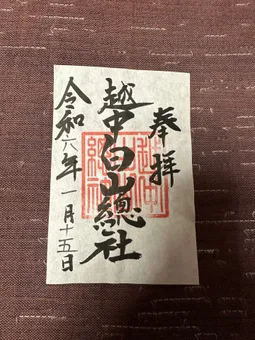 奉拝
越中白山總社
令和六年一月十五日